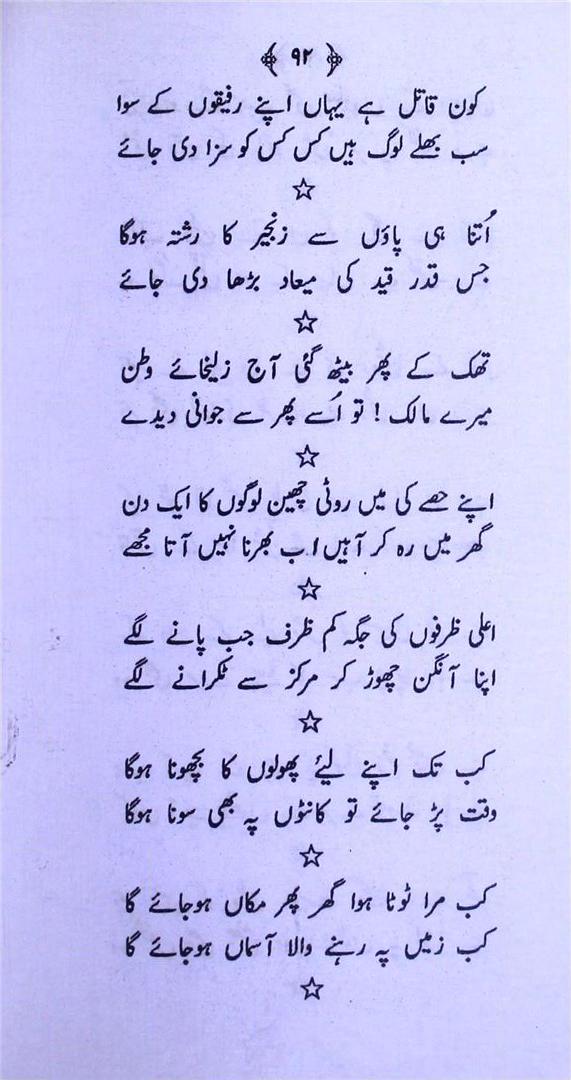 ۹۲
کون قاتل ہے یہاں اپنے رفیقوں کے سوا
سب بھلے لوگ ہیں کس کس کو سزا دی جائے
اُتنا ہی پاؤں سے زنجیر کا رشتہ ہوگا
جس قدر قید کی میعاد بڑھا دی جائے
تھک کے پھر بیٹھ گئی آج زلیخائے وطن
میرے مالک ! تو اُسے پھر سے جوانی دیدے
اپنے حصے کی میں روٹی چھین لوگوں کا ایک دن
گھر میں رہ کر آہیں اب بھرنا نہیں آتا مجھے
اعلی ظرفوں کی جگہ کم ظرف جب پانے لگے
اپنا آنگن چھوڑ کر مرکز سے ٹکرانے لگے
کب تک اپنے لیئے پھولوں کا بچھونا ہوگا
وقت پڑ جائے تو کانٹوں پہ بھی سونا ہوگا
کب مرا ٹوٹا ہوا گھر پھر مکاں ہوجائے گا
کب زمیں پہ رہنے والا آسماں ہوجائے گا